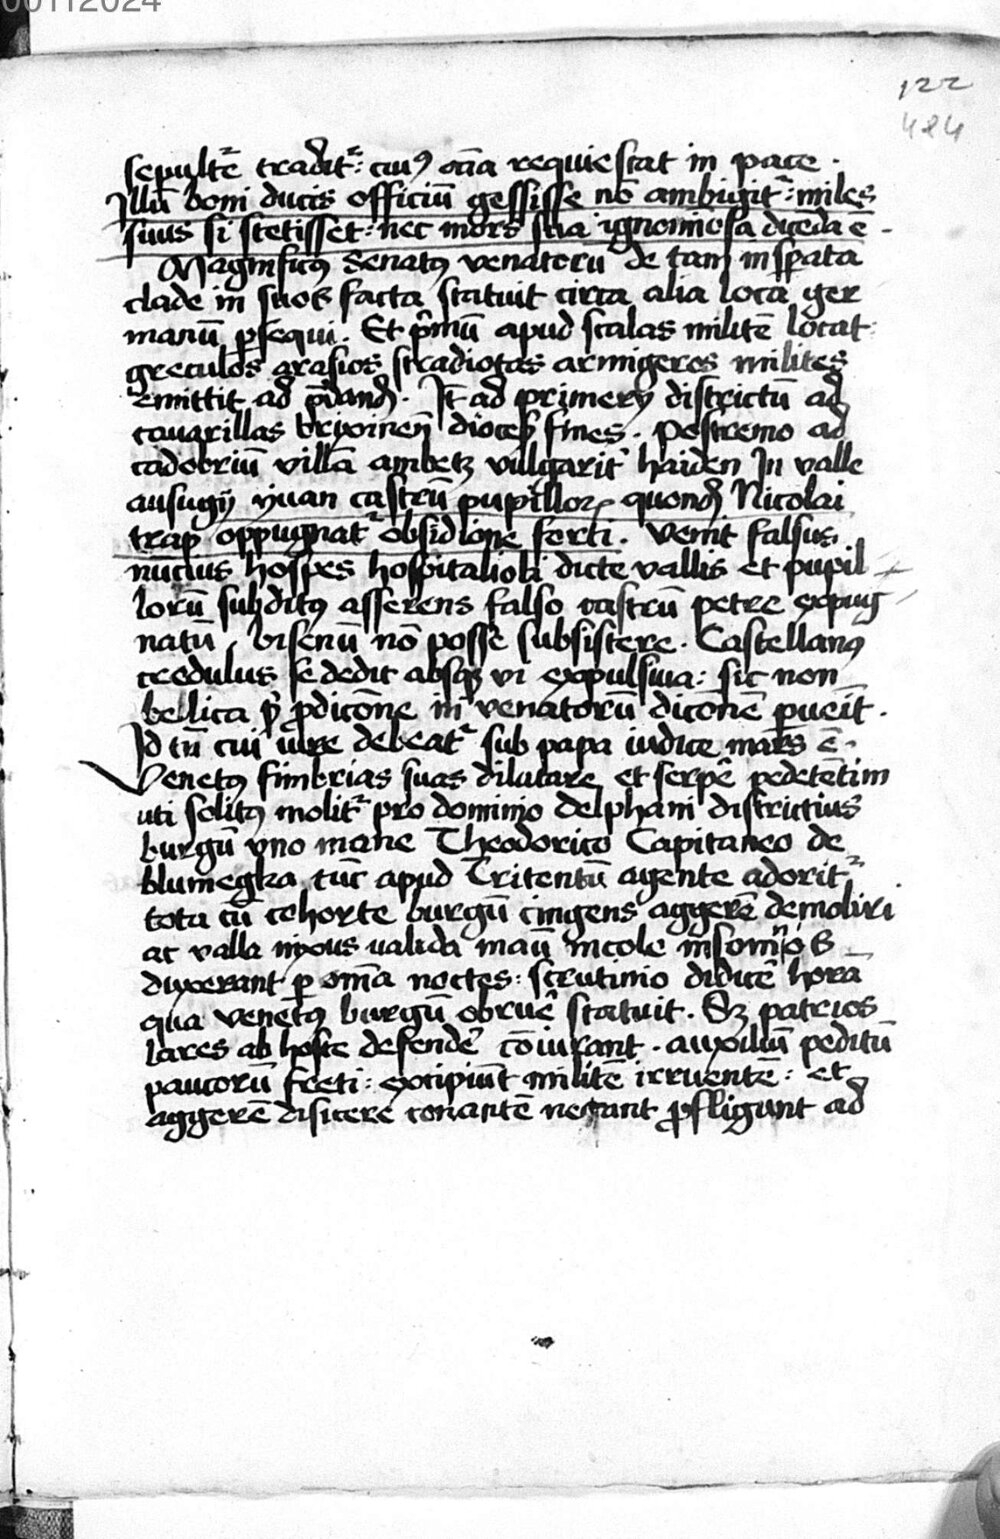 00112024
122
484
sepult̄e tradit᷑: cuiꝰ oīa requiescat in pace.
Illū boni ducis officiū gessisse nō ambigit᷑: miles
suus si stetisset: nec mors sua ignominiosa dicēda ē.
Magnificꝰ Senatꝰ venatorū de tam insꝑata
clade in suos facta statuit circa alia loca ger
manū ꝑsequi. Et p̄mū apud scalas militē locat:
greculos arasios stradiotas armigeros milites
emittit ad p̄dand. It̄ ad primery districtū ad
tauarillas brixineñ dioces fines. Postremo ad
cadobriū villā ambetz vulgarit᷑ haiden In valle
ausugij yuan castrū pupilloꝝ quond Nicolai
trap oppugnat᷑ obsidione forti. Venit falsus
nuncius hospes hospitalioli dicte vallis et pupil
lorū subditꝰ asserens falso castrū petre expug
natū, bisenū nō posse subsistere. Castellanꝰ
credulus se dedit absqꝫ vi expulsiua: sic non
bellica ꝓ ꝓdicōne in venatorū dicōnē ꝑueīt.
Id tn̄ cui debeat᷑ sub papa iudice mars ē.
Venetꝰ fimbrias suas dilatare et serpē pedetētim
uti solitꝰ molit᷑ pro dominio delphani districtius
burgū vno mane Theodorico Capitaneo de
blumegka tūc apud Tritentū agente adorit᷑
tota cū cohorte burgū cingens aggerē demoliri
ac valla nixus valida manū incole
duxerant ꝑ om̄a noctes: scrutinio didicē horā
qua venetꝰ burgū obruē statuit. Sꝫ patrios
lares ab hoste defendē cōiurant. auxiliū peditū
paucorū freti: excipiūt militē irruentē: et
aggerē disicere conantē necant ꝓfligant ad